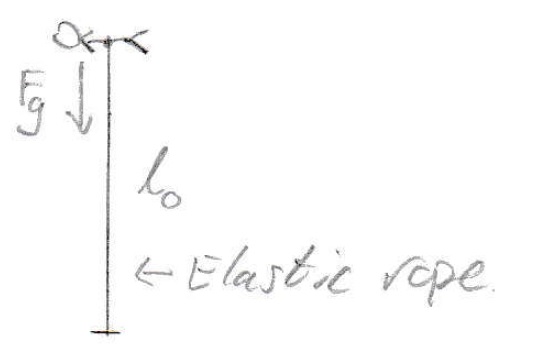 Fg
l₀
← Elastic rope.